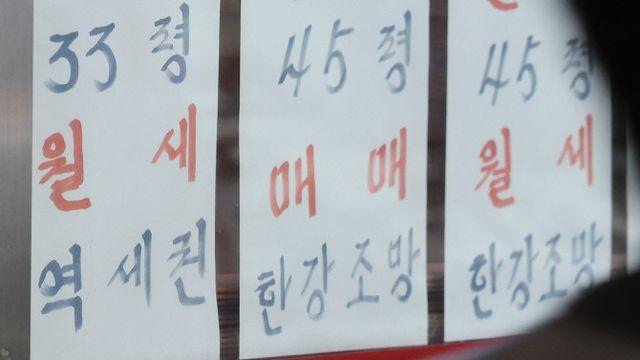 33평
월세
역세권
45평
매매
한강조망
45평
월세
한강조망